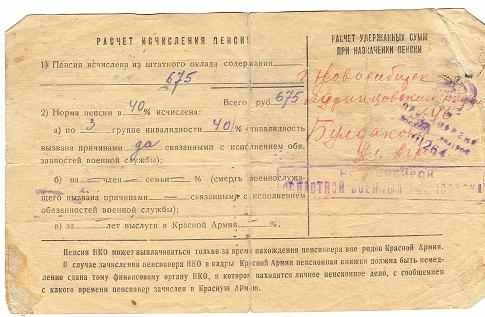 РАСЧЕТ ИСЧИСЛЕНИЯ ПЕНСИИ
1) Пенсия исчислена из штатного оклада содержания
675
2) Норма пенсии в 40% исчислена: Всего руб. 675
а) по 3 группе инвалидности 40% (инвалидность
вызвана причинами да связанными с исполнением обя-
занностей военной службы);
б) на член семьи % (смерть военнослужа-
щего вызвана причинами связанными с исполнением
обязанностей военной службы);
в) за лет выслуги в Красной Армии %
РАСЧЕТ УДЕРЖАННЫХ СУММ
ПРИ НАЗНАЧЕНИИ ПЕНСИИ
г. Новосибирск
ул
ОБЛАСТНОЙ ВОЕННЫЙ
Пенсия НКО может выплачиваться только за время нахождения пенсионера вне рядов Красной Армии.
В случае зачисления пенсионера НКО в кадры Красной Армии пенсионная книжка должна быть немед-
ленно сдана тому финансовому органу НКО, в котором находится личное пенсионное дело, с сообщением
с какого времени пенсионер зачислен в Красную Армию.